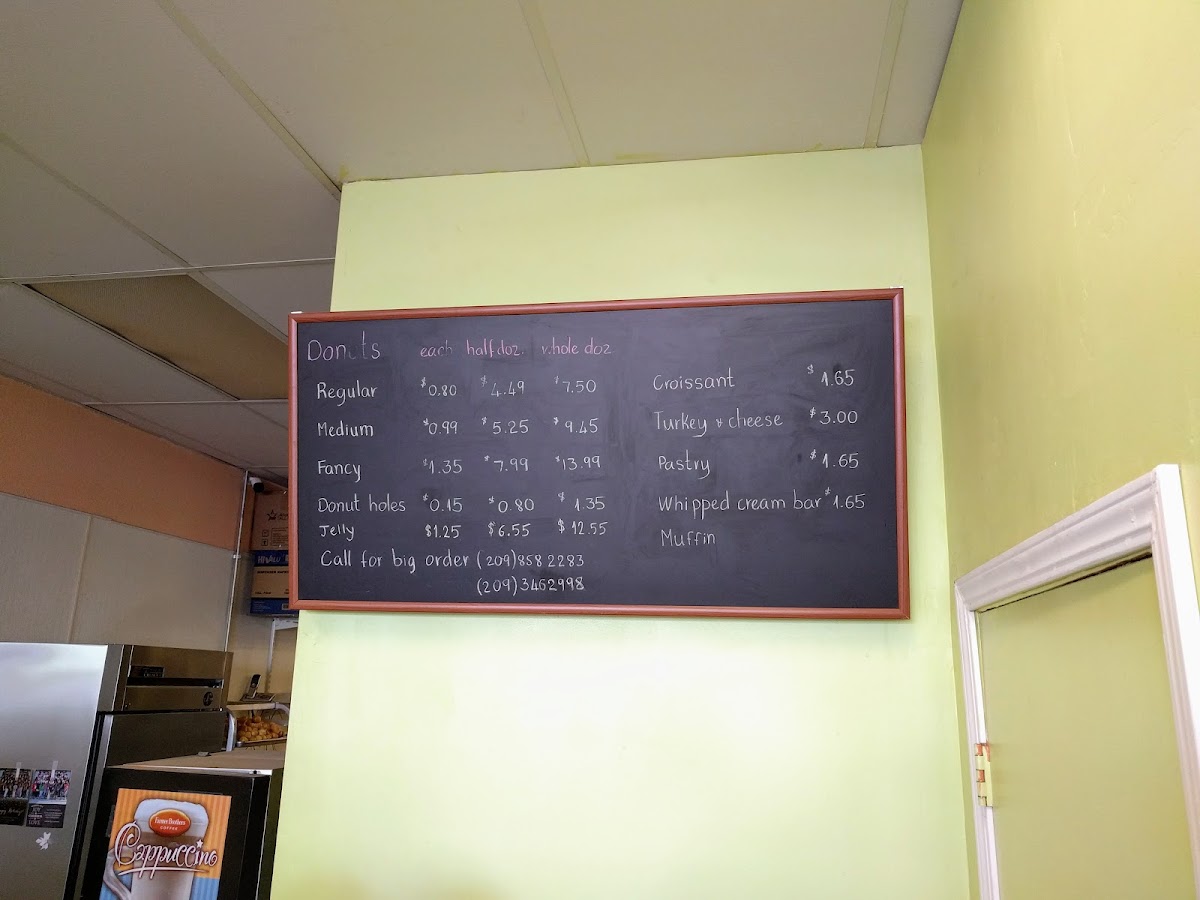 Donuts each half doz. whole doz
Regular $0.80 $4.49 $7.50
Medium $0.99 $5.25 $9.45
Fancy $1.35 $7.99 $13.99
Donut holes $0.15 $0.80 $1.35
Jelly $1.25 $6.55 $12.55
Call for big order (209)858 2283
(209)3462998
Croissant $1.65
Turkey & cheese $3.00
Pastry $1.65
Whipped cream bar $1.65
Muffin
Farmer Brothers
COFFEE
Cappuccino